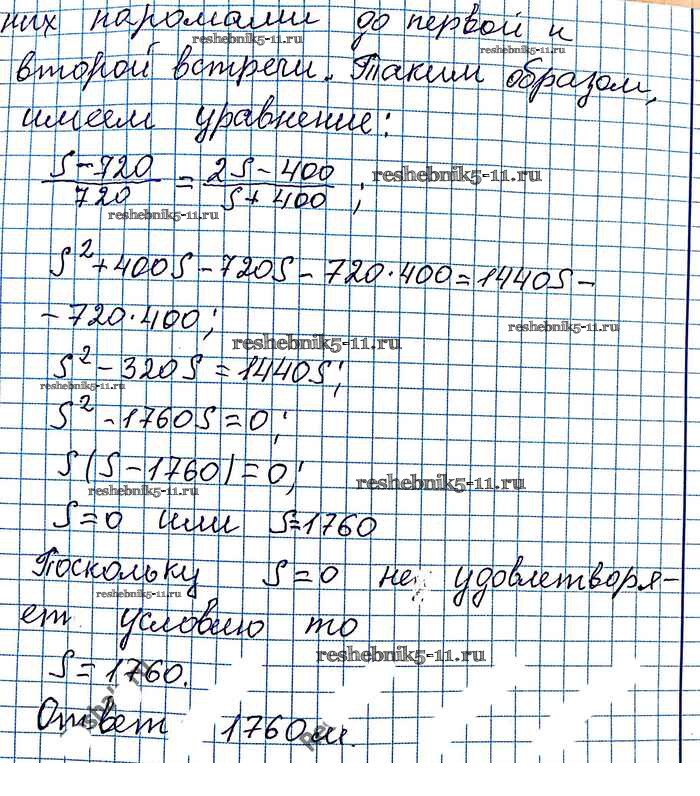 них паромами до первой и
reshebnik5-11.ru
reshebnik5-11.ru
второй встречи. Таким образом,
имеем уравнение:
S-720/720 = 2S-400/S+400;
reshebnik5-11.ru
reshebnik5-11.ru
S²+400S-720S-720·400=1440S-
-720·400;
reshebnik5-11.ru
reshebnik5-11.ru
S²-320S=1440S;
reshebnik5-11.ru
S²-1760S=0;
S(S-1760)=0;
reshebnik5-11.ru
reshebnik5-11.ru
S=0 или S=1760
Поскольку S=0 не удовлетворя-
reshebnik5-11.ru
ет условию то
reshebnik5-11.ru
S=1760.
Ответ 1760м.